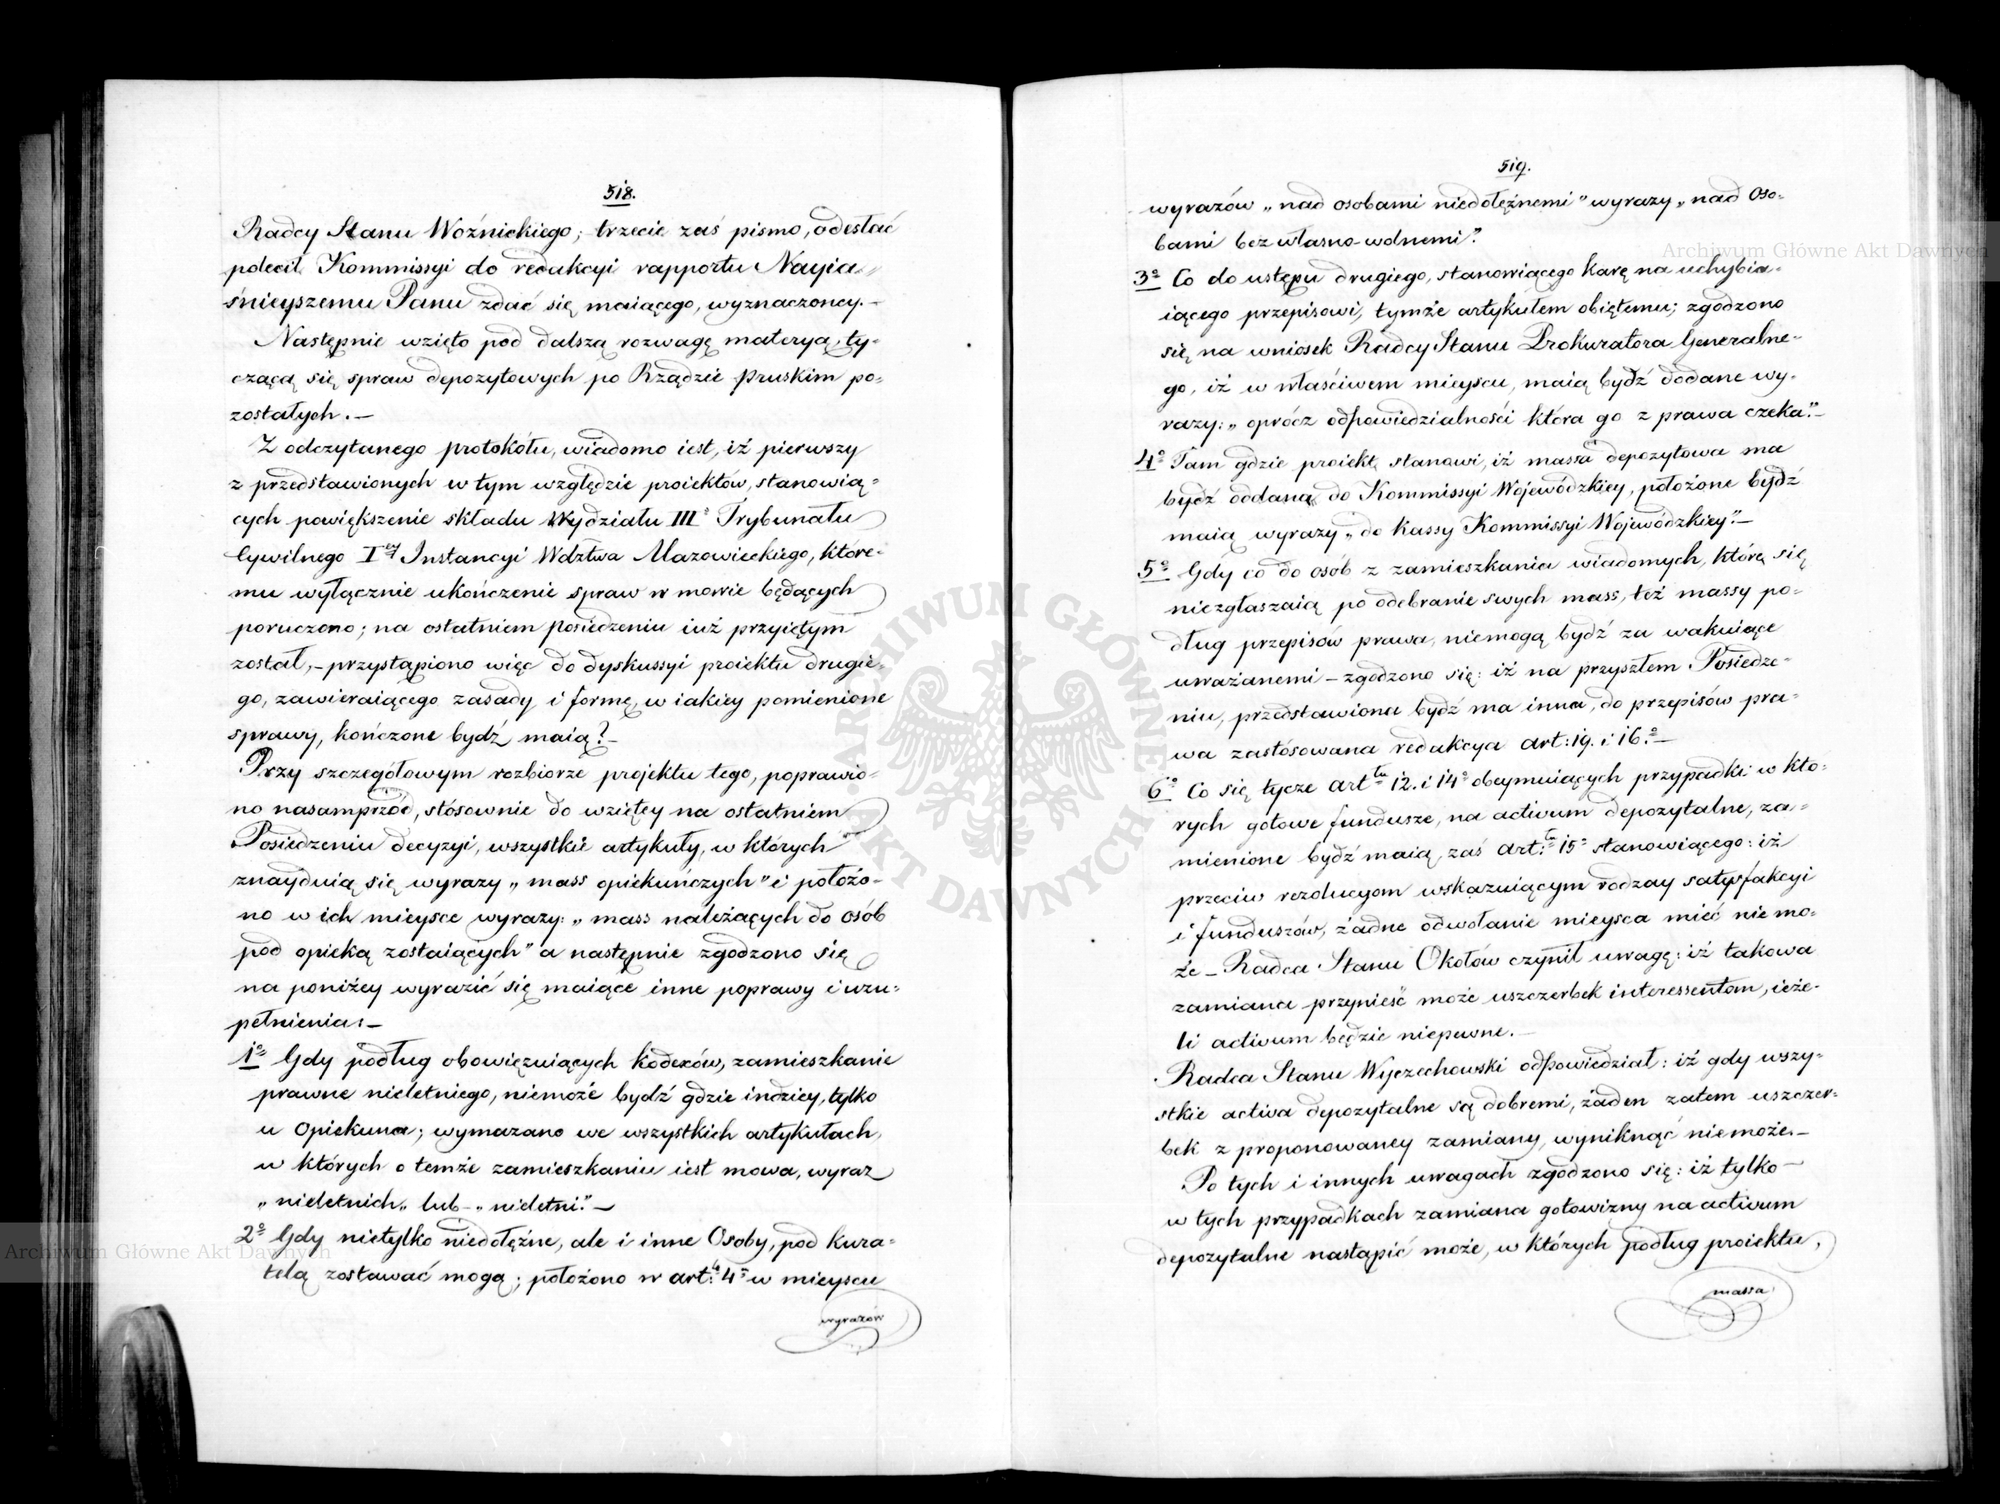 518.
Radcy Stanu Woźnickiego; trzecie zaś pismo, odesłać
polecił Kommissyi do redukcyi rapportu Nayia„
śnieyszemu Panu zdać się maiącego, wyznaczoney.—
Następnie wzięto pod dalszą rozwagę materyą, ty-
czącą się spraw depozytowych po Rządzie pruskim po-
zostałych.—
Z odczytanego protokółu, wiadomo iest, iż pierwszy
z przedstawionych w tym względzie proiektów, stanowią-
cych powiększenie składu Wydziału IIIº Trybunału
Cywilnego Iey Instancyi Wdztwa Mazowieckiego, które-
mu wyłącznie ukończenie spraw w mowie będących
poruczono; na ostatniem posiedzeniu iuż przyiętym
został,— przystąpiono więc do dyskussyi proiektu drugie-
go, zawieraiącego zasady i formę, w iakiey pomienione
sprawy, kończone bydź maią?—
Przy szczegółowym rozbiorze projektu tego, poprawio-
no nasamprzód, stósownie do wziętey na ostatniem
Posiedzeniu decyzyi, wszystkie artykuły, w których
znayduią się wyrazy „mass opiekuńczych” i położo-
no w ich mieysce wyrazy: „mass należących do osób
pod opieką zostaiących” a następnie zgodzono się
na poniżey wyrazić się maiące inne poprawy i uzu-
pełnienia:—
1º Gdy podług obowięzuiących kodexów, zamieszkanie
prawne nieletniego, niemoże bydź gdzie indziey, tylko
u Opiekuna; wymazano we wszystkich artykułach,
w których o temże zamieszkaniu iest mowa, wyraz
„nieletnich„ lub— „nieletni.”—
2º Gdy nietylko niedołężne, ale i inne Osoby, pod kura-
telą zostawać mogą; położono w art: 4º w mieyscu
wyrazów
519.
wyrazów „nad osobami niedołężnemi” wyrazy „nad oso-
bami bez własno-wolnemi”.
3º Co do ustępu drugiego, stanowiącego karę na uchybia-
iącego przepisowi, tymże artykułem obiętemu; zgodzono
się na wniosek Radcy Stanu Prokuratora Generalne-
go, iż w właściwem mieyscu, maią bydź dodane wy-
razy: „oprócz odpowiedzialności która go z prawa czeka.”—
4º Tam gdzie proiekt stanowi, iż massa depozytowa ma
bydź oddaną do Kommissyi Wojewódzkiey, położone bydź
maią wyrazy „do kassy Kommissyi Wojewódzkiey”.—
5º Gdy co do osób z zamieszkania wiadomych, którę się
niezgłaszaią po odebranie swych mass, też massy po-
dług przepisow prawa, niemogą bydź za wakuiące
uważanemi — zgodzono się: iż na przyszłem Posiedze-
niu, przedstawiona bydź ma inna, do przepisów pra-
wa zastósowana redukcya art: 19. i 16.º—
6º Co się tycze art łu 12. i 14º obeymuiących przypadki w któ-
rych gotowe fundusze, na activum depozytalne, za-
mienione bydź maią, zaś art: łu 15º stanowiącego: iż
przeciw rezolucyom wskazuiącym rodzay satysfakcyi
i funduszów, żadne odwołanie mieysca mieć niemo-
że — Radca Stanu Okołów czynił uwagę: iż takowa
zamiana przynieść może uszczerbek interessentom, ieże-
li activum będzie niepewne.—
Radca Stanu Wyczechowski odpowiedział: iż gdy wszy-
stkie activa depozytalne są dobremi, żaden zatem uszczer-
bek z proponowaney zamiany, wyniknąć niemoże.—
Po tych i innych uwagach zgodzono się: iż tylko—
w tych przypadkach zamiana gotowizny na activum
depozytalne nastąpić może, w których podług proiektu,
massa
ARCHIWUM GŁÓWNE AKT DAWNYCH
Archiwum Główne Akt Dawnych
Archiwum Główne Akt Dawnych